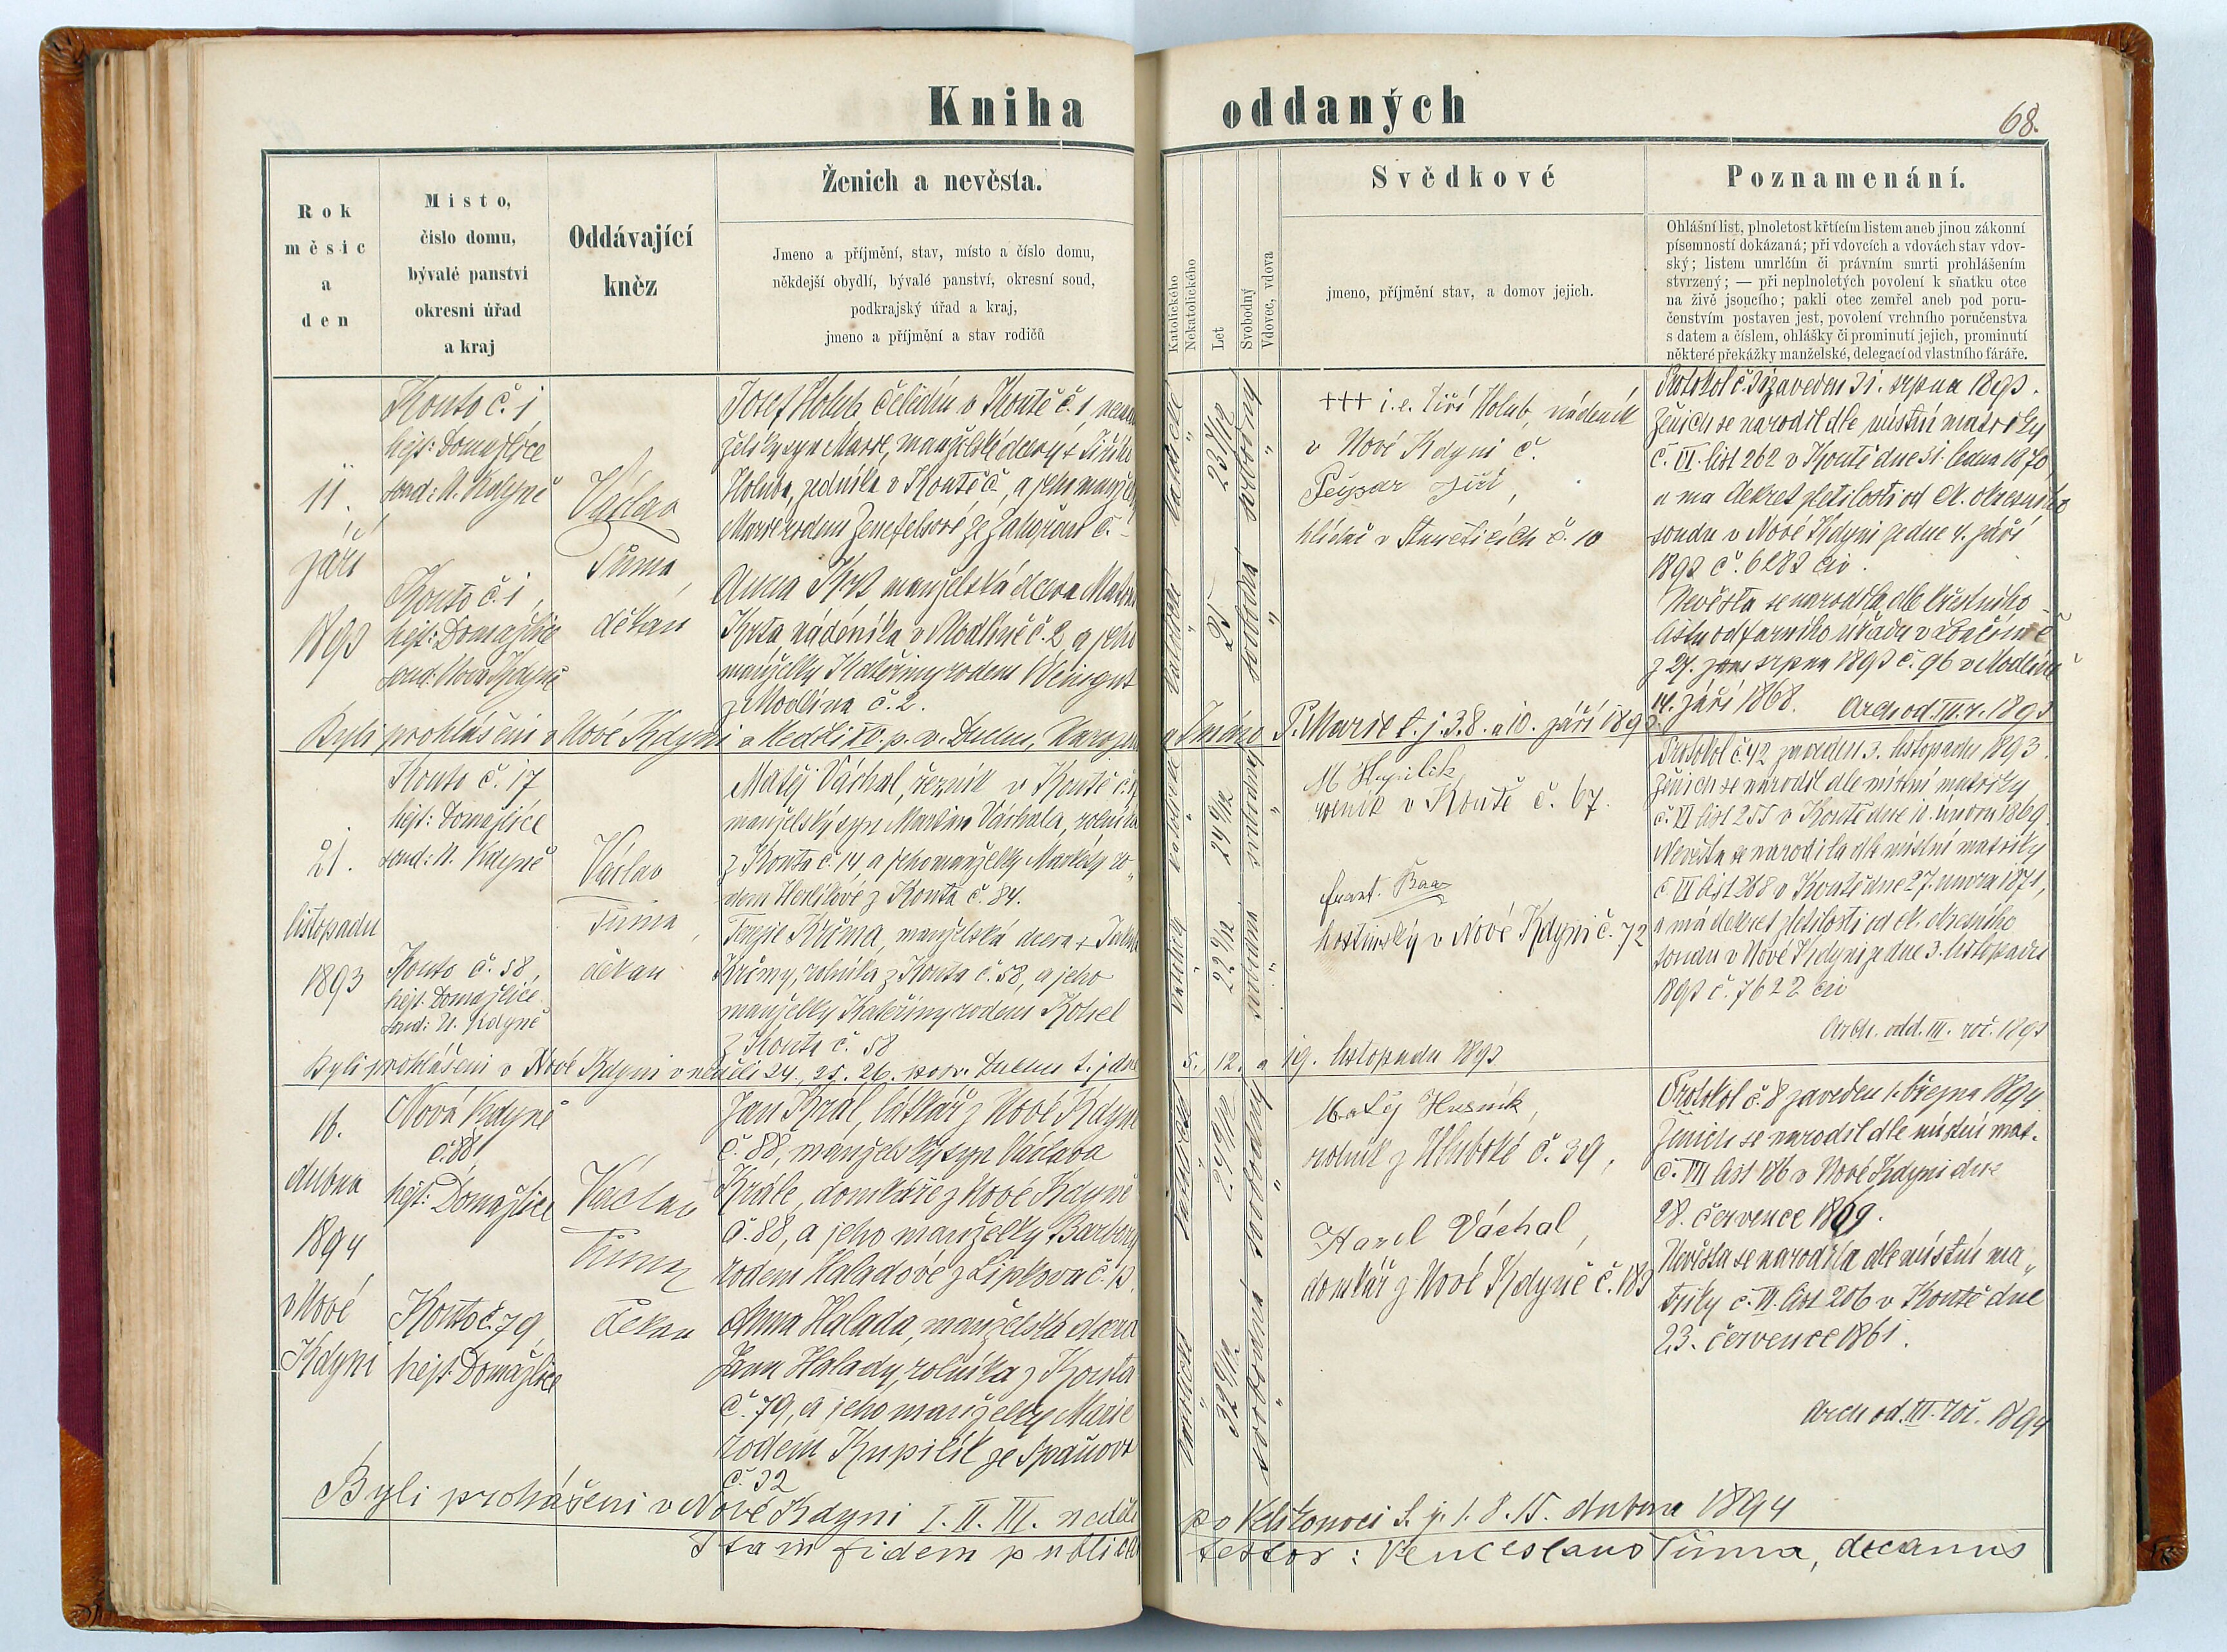 Kniha oddaných
68.
Rok
měsíc
a
den
Místo,
číslo domu,
bývalé panství
okresní úřad
a kraj
Oddávající
kněz
Ženich a nevěsta.
Jmeno a příjmění, stav, místo a číslo domu,
někdejší obydlí, bývalé panství, okresní soud,
podkrajský úřad a kraj,
jmeno a příjmění a stav rodičů
Katolického
Nekatolického
Let
Svobodný
Vdovec, vdova
Svědkové
jmeno, příjmění stav, a domov jejich.
Poznamenání.
Ohlášní list, plnoletost křtícím listem aneb jinou zákonní
písemností dokázaná; při vdovcích a vdovách stav vdov-
ský; listem umrlčím či právním smrti prohlášením
stvrzený; — při neplnoletých povolení k sňatku otce
na živě jsoucího; pakli otec zemřel aneb pod poru-
čenstvím postaven jest, povolení vrchního poručenstva
s datem a číslem, ohlášky či prominutí jejich, prominutí
některé překážky manželské, delegací od vlastního fáráře.
11.
září
1893
Kouto č. 1
hejt: Domažlice
soud: N. Kdyně
Kouto č. 1,
hejt: Domažlice
soud: Nová Kdyně
Václav
Tůma,
děkan
Josef Holub čeledín v Koutě č. 1,
Holuba, v Koutě č, a jeho
Marie rodem
Anna Krs manželská dcera
Krsa nádeníka v Modlíně č. 2, a jeho
manželky Kateřiny rodem
z Modlína č. 2.
katolické
23 7/12
svobodný
katolické
25
svobodná
+++ i. e. Jiří Holub, nádeník
v Nové Kdyni č.
Jiří,
v č. 10
Protokol č. zaveden 31. srpna 1893.
Ženich se narodil dle místní matriky
č. VI. list 262 v Koutě dne 31. ledna 1870,
a má dekret zletilosti od ck. okresního
soudu v Nové Kdyni ze dne 4. září
1893 č. 6282 civ.
Nevěsta se narodila dle křestního
listu od farního úřadu v
z 27. srpna 1893 č. 96 v Modlíně
14. září 1868. Arch. od. III. r. 1893
Byli prohlášeni v Nové Kdyni v neděli XV. p. sv. Duchu,
P. Marie t. j. 3. 8. a 10. září 1893.
21.
listopadu
1893
Kouto č. 17
hejt: Domažlice
soud: N. Kdyně
Kouto č. 58,
hejt. Domažlice
soud: N. Kdyně
Václav
Tůma,
děkan
Matěj Váchal, řezník v Koutě č. 17
manželský syn Martina Váchala, rolníka
z Kouta č. 14, a jeho manželky Markéty ro„
dem z Kouta č. 84.
Terezie Krčma, manželská dcera +
Krčmy, rolníka z Kouta č. 58, a jeho
manželky Kateřiny rodem Kohel
z Kouta č. 58
24 9/12
svobodný
22 9/12
svobodná
M Kupilík
rolník v Koutě č. 67.
Frant. Baar
hostinský v Nové Kdyni č. 72
Protokol č. 42 zaveden 3. listopadu 1893.
Ženich se narodil dle místní matriky
č. VI list 255 v Koutě dne 10. února 1869.
Nevěsta se narodila dle místní matriky
č. VI list 268 v Koutě dne 27. února 1871,
a má dekret zletilosti od ck. okresního
soudu v Nové Kdyni ze dne 3. listopadu
1893 č. 7622 civ
Arch. odd. III. roč. 1893
Byli prohlášeni v Nové Kdyni v neděli 24., 25. 26. po sv. Duchu t. j. dne 5. 12. a 19. listopadu 1893
16.
dubna
1894
v Nové
Kdyni
Nová Kdyně
č. 88,
hejt: Domažlice
Kouto č. 79,
hejt: Domažlice
Václav
Tůma
děkan
Jan Král, látkář z Nové Kdyně
č. 88, manželský syn Václava
Krále, domkáře z Nové Kdyně
č. 88, a jeho manželky Barbory
rodem Haladové z Lipkova č. 13.
Anna Halada, manželská dcera
Jana Halady, rolníka z Kouta
č. 79, a jeho manželky Marie
rodem Kupilík ze Spáňova
č. 32
katolické
24 9/12
svobodný
katolické
32 9/12
svobodná
Matěj Husník,
rolník z Hluboké č. 39,
Karel Váchal,
domkář z Nové Kdyně č. 183
Protokol č. 8 zaveden 1. března 1894
Ženich se narodil dle místní mat.
č. VII list 186 v Nové Kdyni dne
28. července 1869.
Nevěsta se narodila dle místní ma„
triky č. VI. list 206 v Koutě dne
23. července 1861.
Arch od. III. roč. 1894
Byli prohlášeni v Nové Kdyni I. II. III. neděli po Velikonoci t. j. 1. 8. 15. dubna 1894
Ita in fidem publicam testor: Venceslaus Tůma, decanus